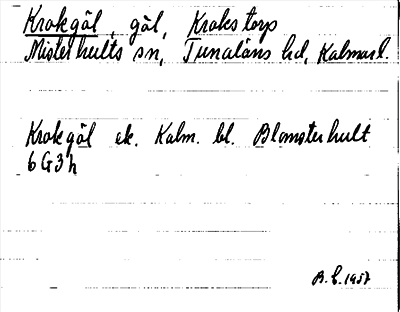 Krokgöl, göl, Krokstorp
Misterhults sn, Tunaläns hd, Kalmar l.
Krokgöl ek. Kalm. bl. Blomsterhult
6G3h
B.E. 1957